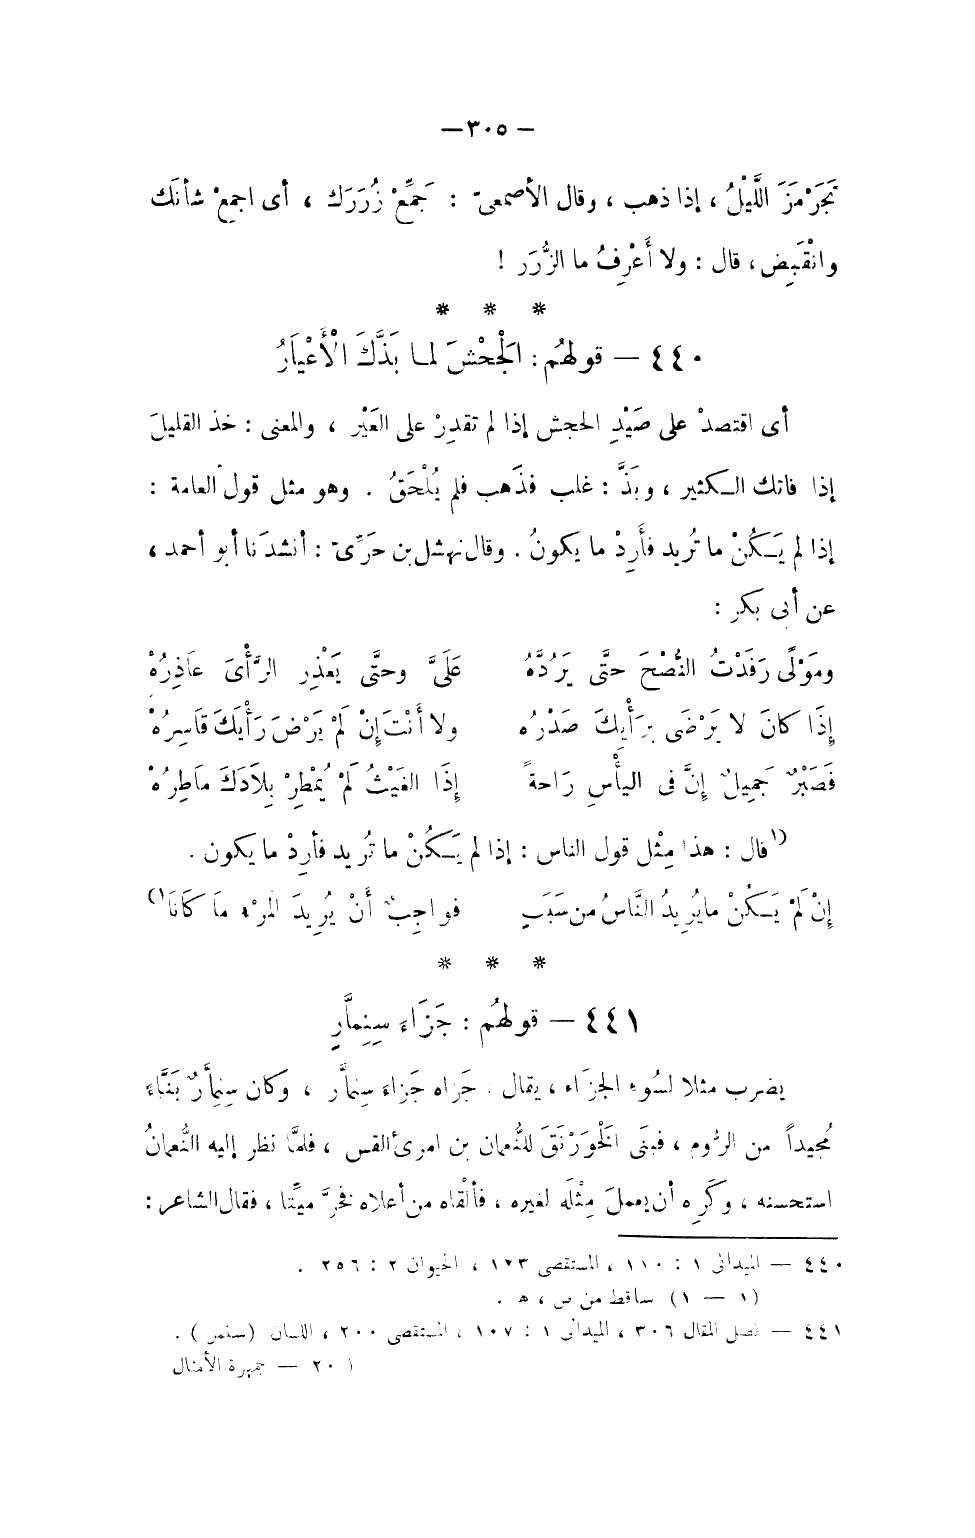 — ٣٠٥ —
تَجَرْمَزَ اللَّيْلُ ، إذا ذهب ، وقال الأصمعىّ : جَمِّعْ زُرَرَك ، أى اجمِعْ شأنَك
وانْقَبِض، قال : ولا أَعْرِفُ ما الزُّرَر !
* * *
٤٤٠ — قولهُم : الجْحْشَ لما بَذَّكَ الْأَعْيَارُ
أى اقتصدْ على صَيْدِ الجحش إذا لم تقدِرْ على العَيْر ، والمعنى : خذ القليلَ
إذا فاتك الكثير ، وبَذَّ : غلب فذَهب فلم يُلْحَقْ . وهو مثل قول العامة :
إذا لم يَكُنْ ما تُريد فأَرِدْ ما يكونُ . وقال نهشل بن حَرِّىّ : أنشدَنا أبو أحمد ،
عن أبى بكر :
ومَوْلًى رَفَدْتُ النُّصْحَ حتَّى يَرُدَّهُ عَلَىَّ وحتَّى يَعْذِر الرَّأْىَ عَاذِرُهْ
إِذَا كانَ لا يَرْضَى برَأْيِكَ صَدْرُه ولا أنْتَ إنْ لَمْ يَرْضَ رَأْيَكَ قَاسِرُهْ
فَصَبْرٌ جَمِيلٌ إنَّ فى اليأْسِ رَاحةً إذَا الغَيْثُ لَمْ يُمْطِرْ بِلَادَكَ ماطِرُهْ
(١ قال : هذا مِثْل قول الناس : إذا لم يَكُنْ ما تُريد فأرِدْ ما يكون .
إنْ لَمْ يَكُنْ ما يُرِيدُ النَّاسُ من سَبَبٍ فواجِبٌ أنْ يُرِيدَ المرْء مَا كَانَا ١)
* * *
٤٤١ — قولهُم : جَزَاءَ سِنِمَّارٍ
يضرب مثلا لسُوءِ الجزَاء ، يقال : جَزاه جَزاءَ سِنِمَّار ، وكان سِنِمَّارٌ بَنَّاءً
مُجيداً من الرُّوم ، فبنَى الخَوَرْنَقَ للنُّعمان بن امرئ القس ، فلمَّا نظر إليه النُّعمانُ
استحسنه ، وكَرِه أن يعملَ مِثْلَه لغيره ، فألْقاه من أعلاه فخرَّ ميِّتًا ، فقال الشاعر :
٤٤٠ — الميدانى ١ : ١١٠ ، المستقصى ١٢٣ ، الحيوان ٢ : ٢٥٦ .
(١ — ١) ساقط من ص ، ه .
٤٤١ — فصل المقال ٣٠٦ ، الميدانى ١ : ١٠٧ ، المستقصى ٢٠٠ ، اللسان (سنمر) .
( ٢٠ — جمهرة الأمثال